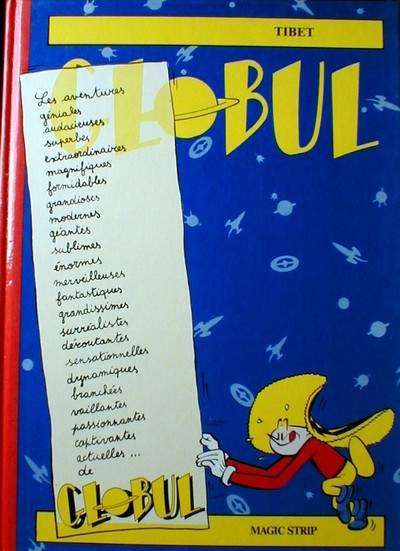 TIBET
GLOBUL
Les aventures
géniales
audacieuses
superbes
extraordinaires
magnifiques
formidables
grandioses
modernes
géantes
sublimes
énormes
merveilleuses
fantastiques
grandissimes
surréalistes
déroutantes
sensationnelles
dynamiques
branchées
vaillantes
passionnantes
captivantes
actuelles ...
de
GLOBUL
MAGIC STRIP